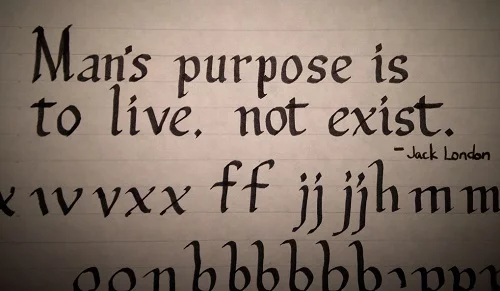 Man's purpose is
to live. not exist.
- Jack London
x w v v x x f f jj jj h m m
o o n b b b b b b